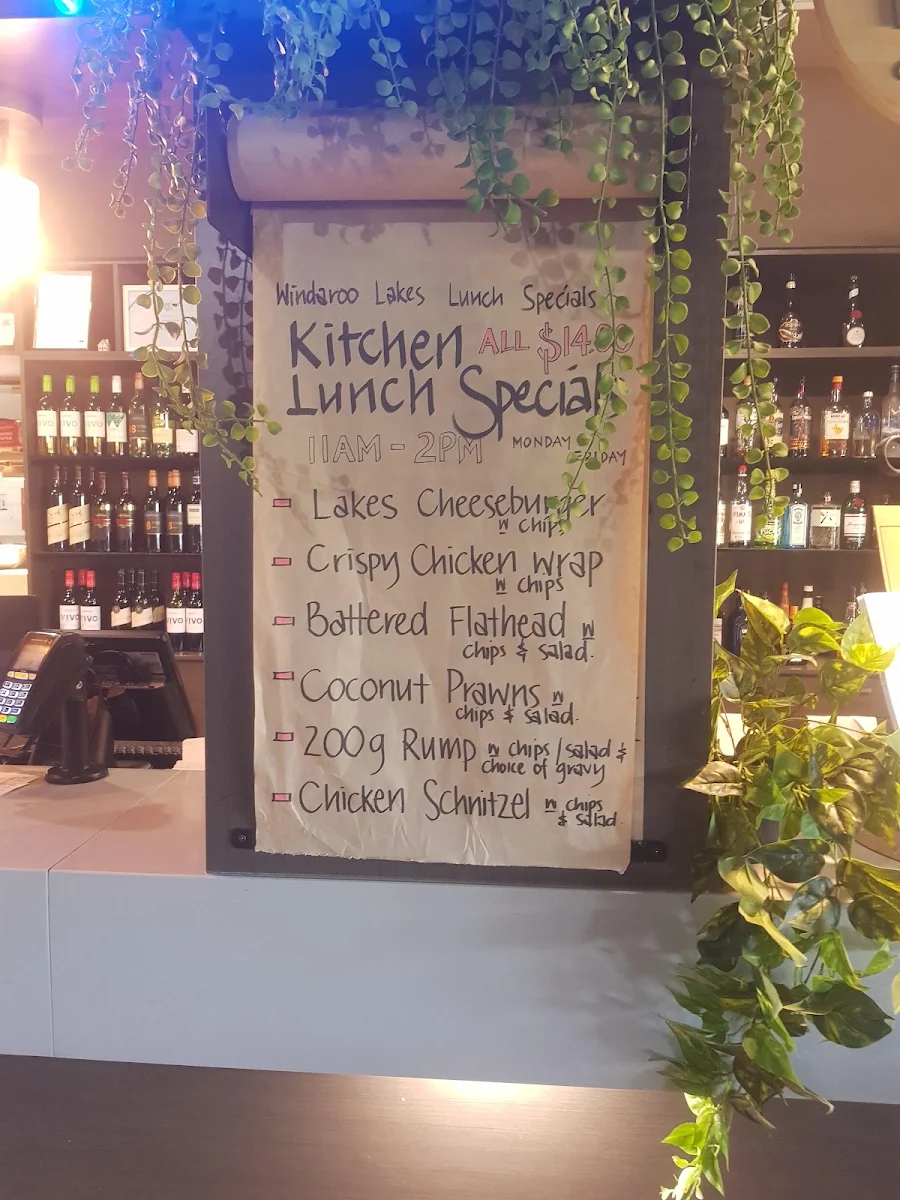 Windaroo Lakes Lunch Specials
Kitchen ALL $14.
Lunch Special
11AM - 2PM MONDAY FRIDAY
Lakes Cheeseburger
w chips
Crispy Chicken wrap
w chips
Battered Flathead w
chips & salad.
Coconut Prawns w
chips & salad.
200g Rump w chips / salad &
choice of gravy
Chicken Schnitzel w chips
& salad.
VIVO
VIVO